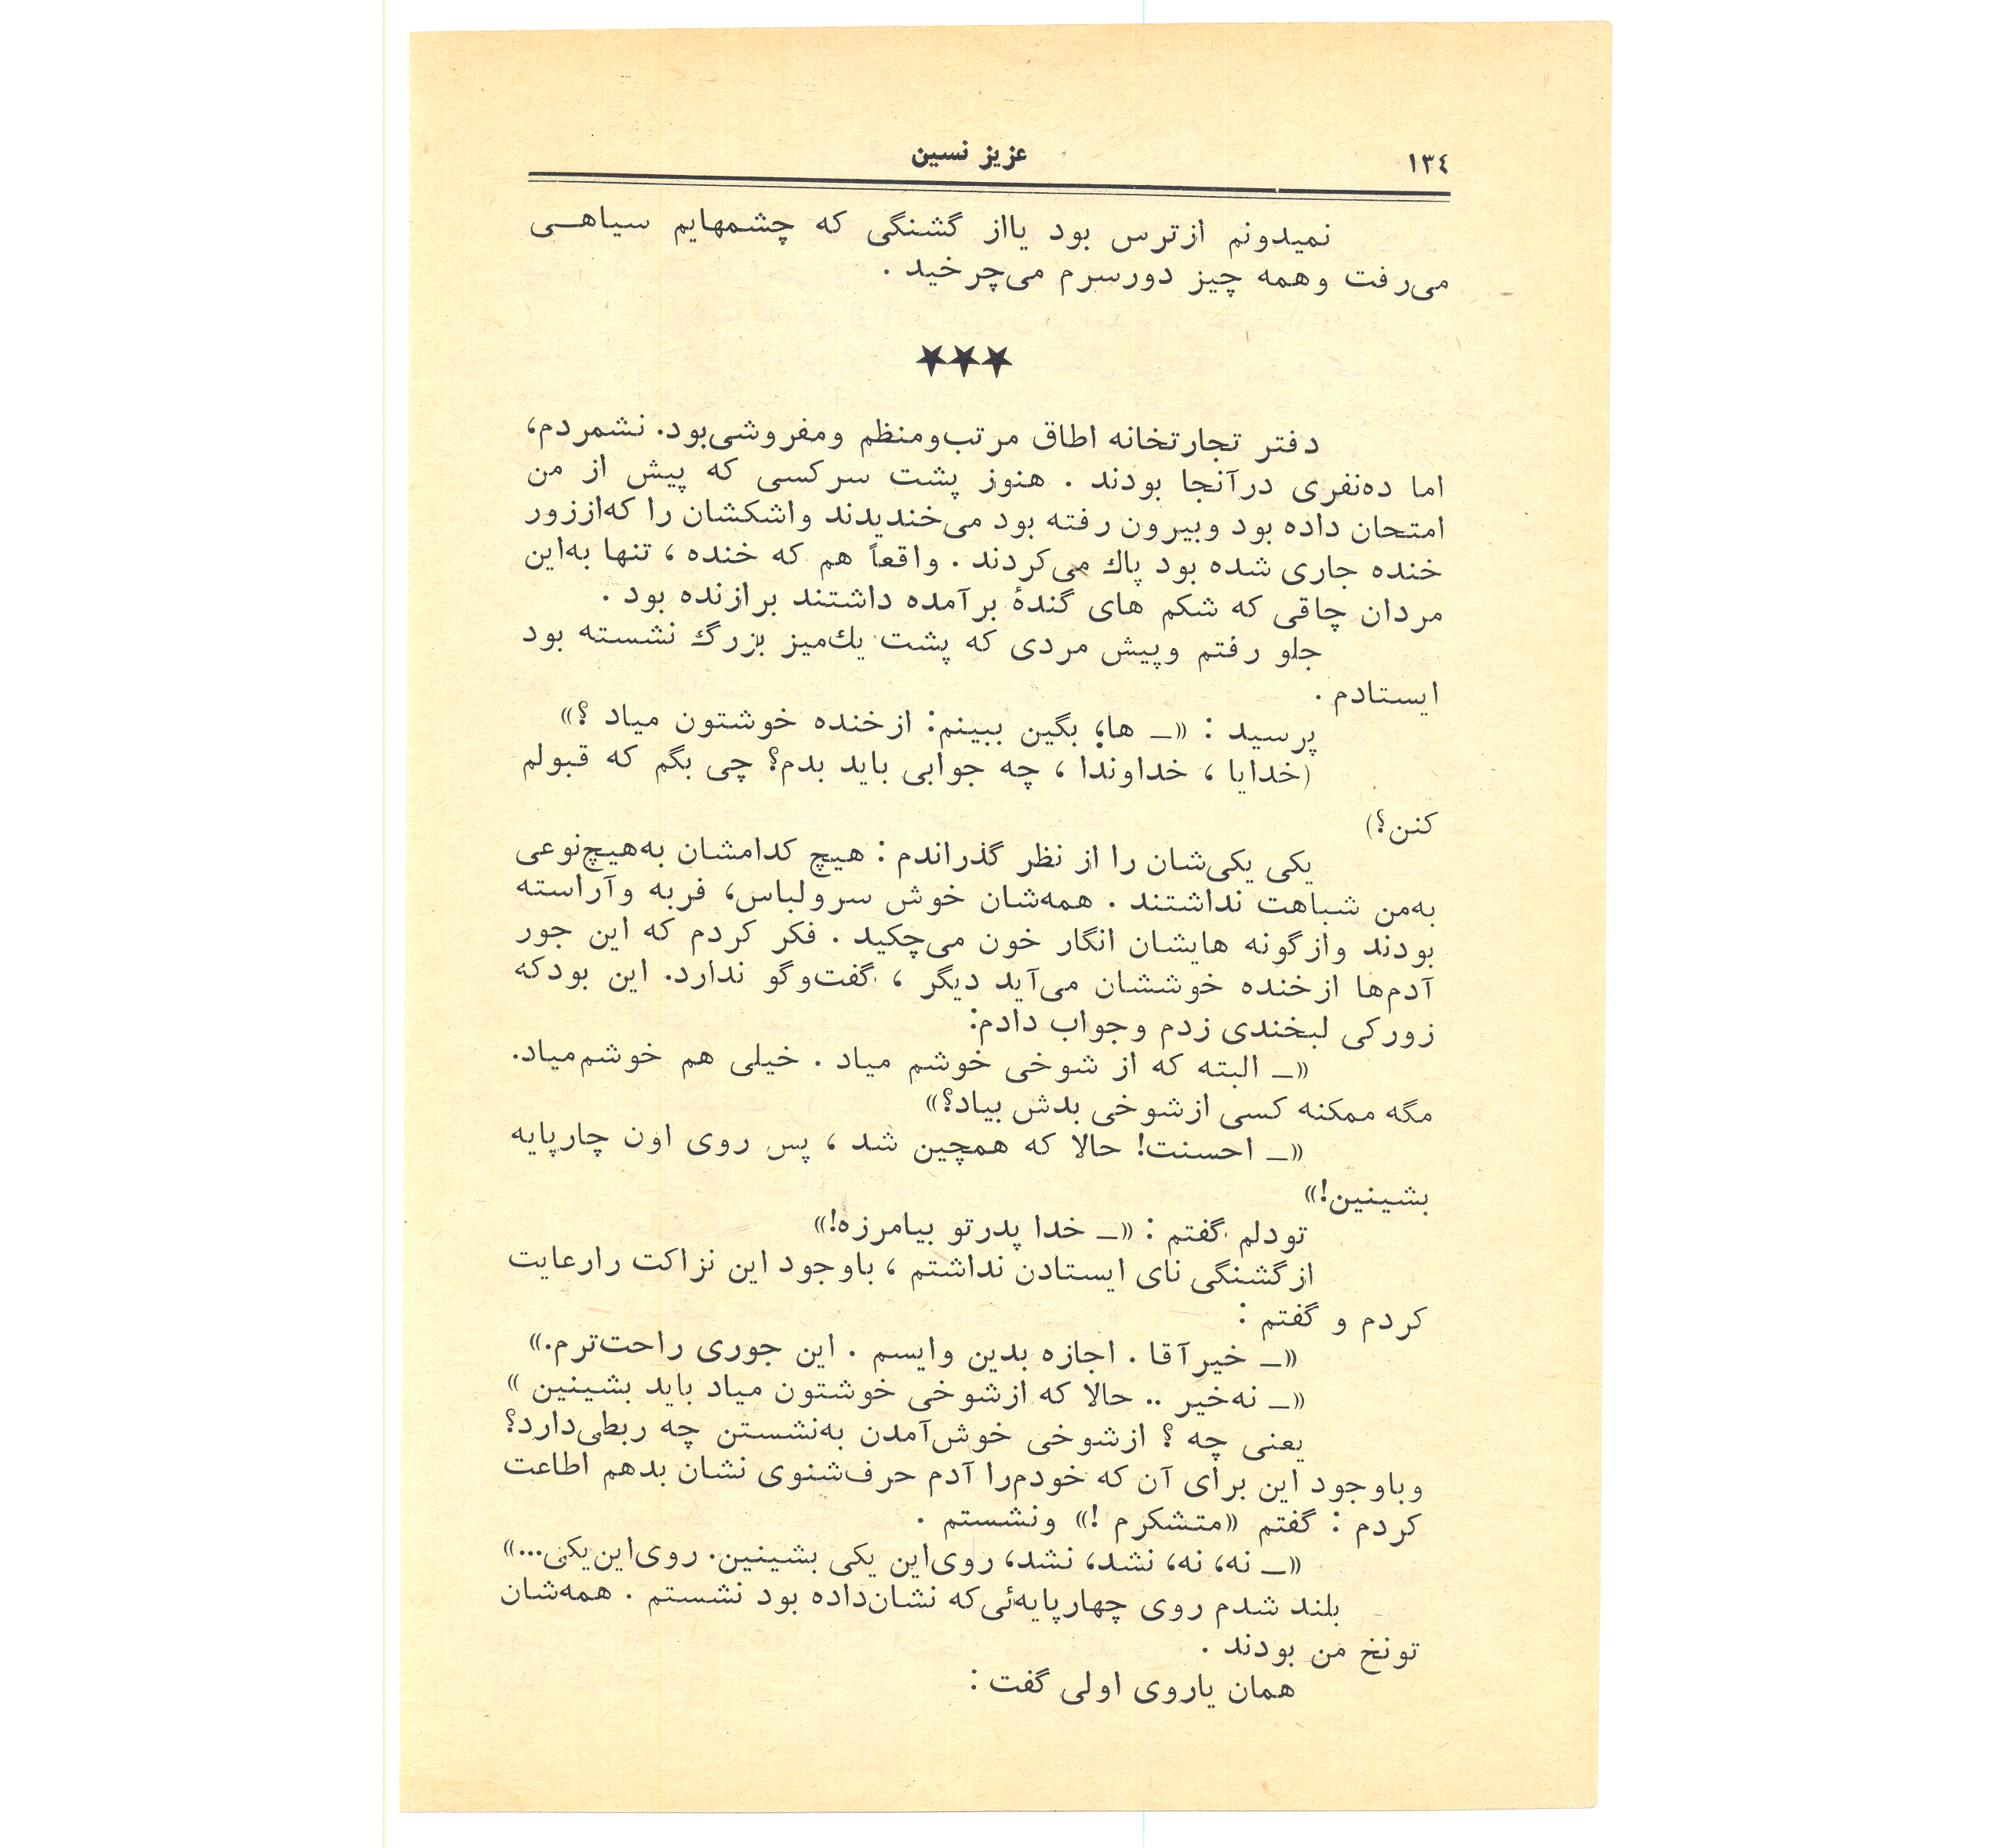 ۱۳٤
عزیز نسین
نمیدونم ازترس بود یااز گشنگی که چشمهایم سیاهـی
می‌رفت وهمه چیز دورسرم می‌چرخید .
★★★
دفتر تجارتخانه اطاق مرتب‌ومنظم ومفروشی‌بود. نشمردم،
اما ده‌نفری درآنجا بودند . هنوز پشت سرکسی که پیش از من
امتحان داده بود وبیرون رفته بود می‌خندیدند واشکشان را که‌اززور
خنده جاری شده بود پاك می‌کردند . واقعاً هم که خنده ، تنها به‌این
مردان چاقی که شکم های گندهٔ برآمده داشتند برازنده بود .
جلو رفتم وپیش مردی که پشت یك‌میز بزرگ نشسته بود
ایستادم .
پرسید : «ـ ها، بگین ببینم: ازخنده خوشتون میاد ؟»
(خدایا ، خداوندا ، چه جوابی باید بدم؟ چی بگم که قبولم
کنن؟)
یکی یکی‌شان را از نظر گذراندم : هیچ کدامشان به‌هیچ‌نوعی
به‌من شباهت نداشتند . همه‌شان خوش سرولباس، فربه وآراسته
بودند وازگونه هایشان انگار خون می‌چکید . فکر کردم که این جور
آدم‌ها ازخنده خوششان می‌آید دیگر ، گفت‌وگو ندارد. این بودکه
زورکی لبخندی زدم وجواب دادم:
«ـ البته که از شوخی خوشم میاد . خیلی هم خوشم‌میاد.
مگه ممکنه کسی ازشوخی بدش بیاد؟»
«ـ احسنت! حالا که همچین شد ، پس روی اون چارپایه
بشینین!»
تودلم گفتم : «ـ خدا پدرتو بیامرزه!»
ازگشنگی نای ایستادن نداشتم ، باوجود این نزاکت رارعایت
کردم و گفتم :
«ـ خیرآقا . اجازه بدین وایسم . این جوری راحت‌ترم.»
«ـ نه‌خیر .. حالا که ازشوخی خوشتون میاد باید بشینین »
یعنی چه ؟ ازشوخی خوش‌آمدن به‌نشستن چه ربطی‌دارد؟
وباوجود این برای آن که خودم‌را آدم حرف‌شنوی نشان بدهم اطاعت
کردم : گفتم «متشکرم !» ونشستم .
«ـ نه، نه، نشد، نشد، روی‌این یکی بشینین. روی‌این‌یکی...»
بلند شدم روی چهارپایه‌ئی‌که نشان‌داده بود نشستم . همه‌شان
تونخ من بودند .
همان یاروی اولی گفت :